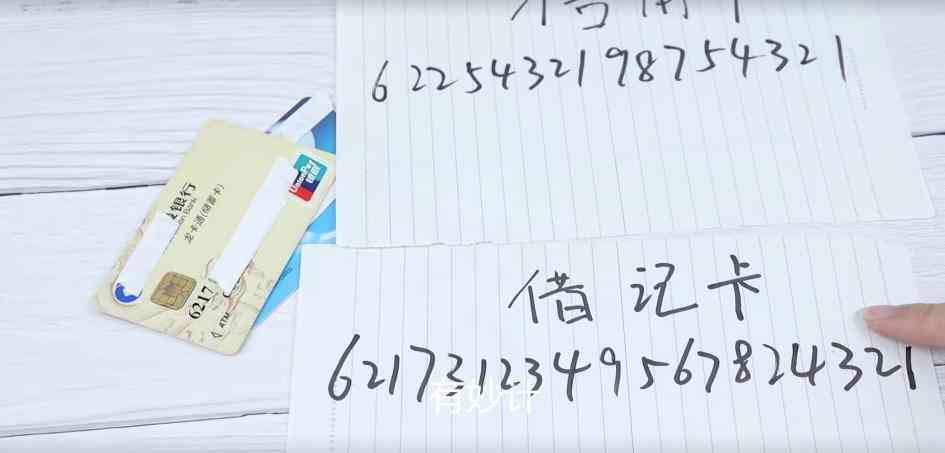 6225432198754321
借记卡
6217212349567824321
有妙计
银行
龙卡通(储蓄卡)
UnionPay
银联
6217
ATM